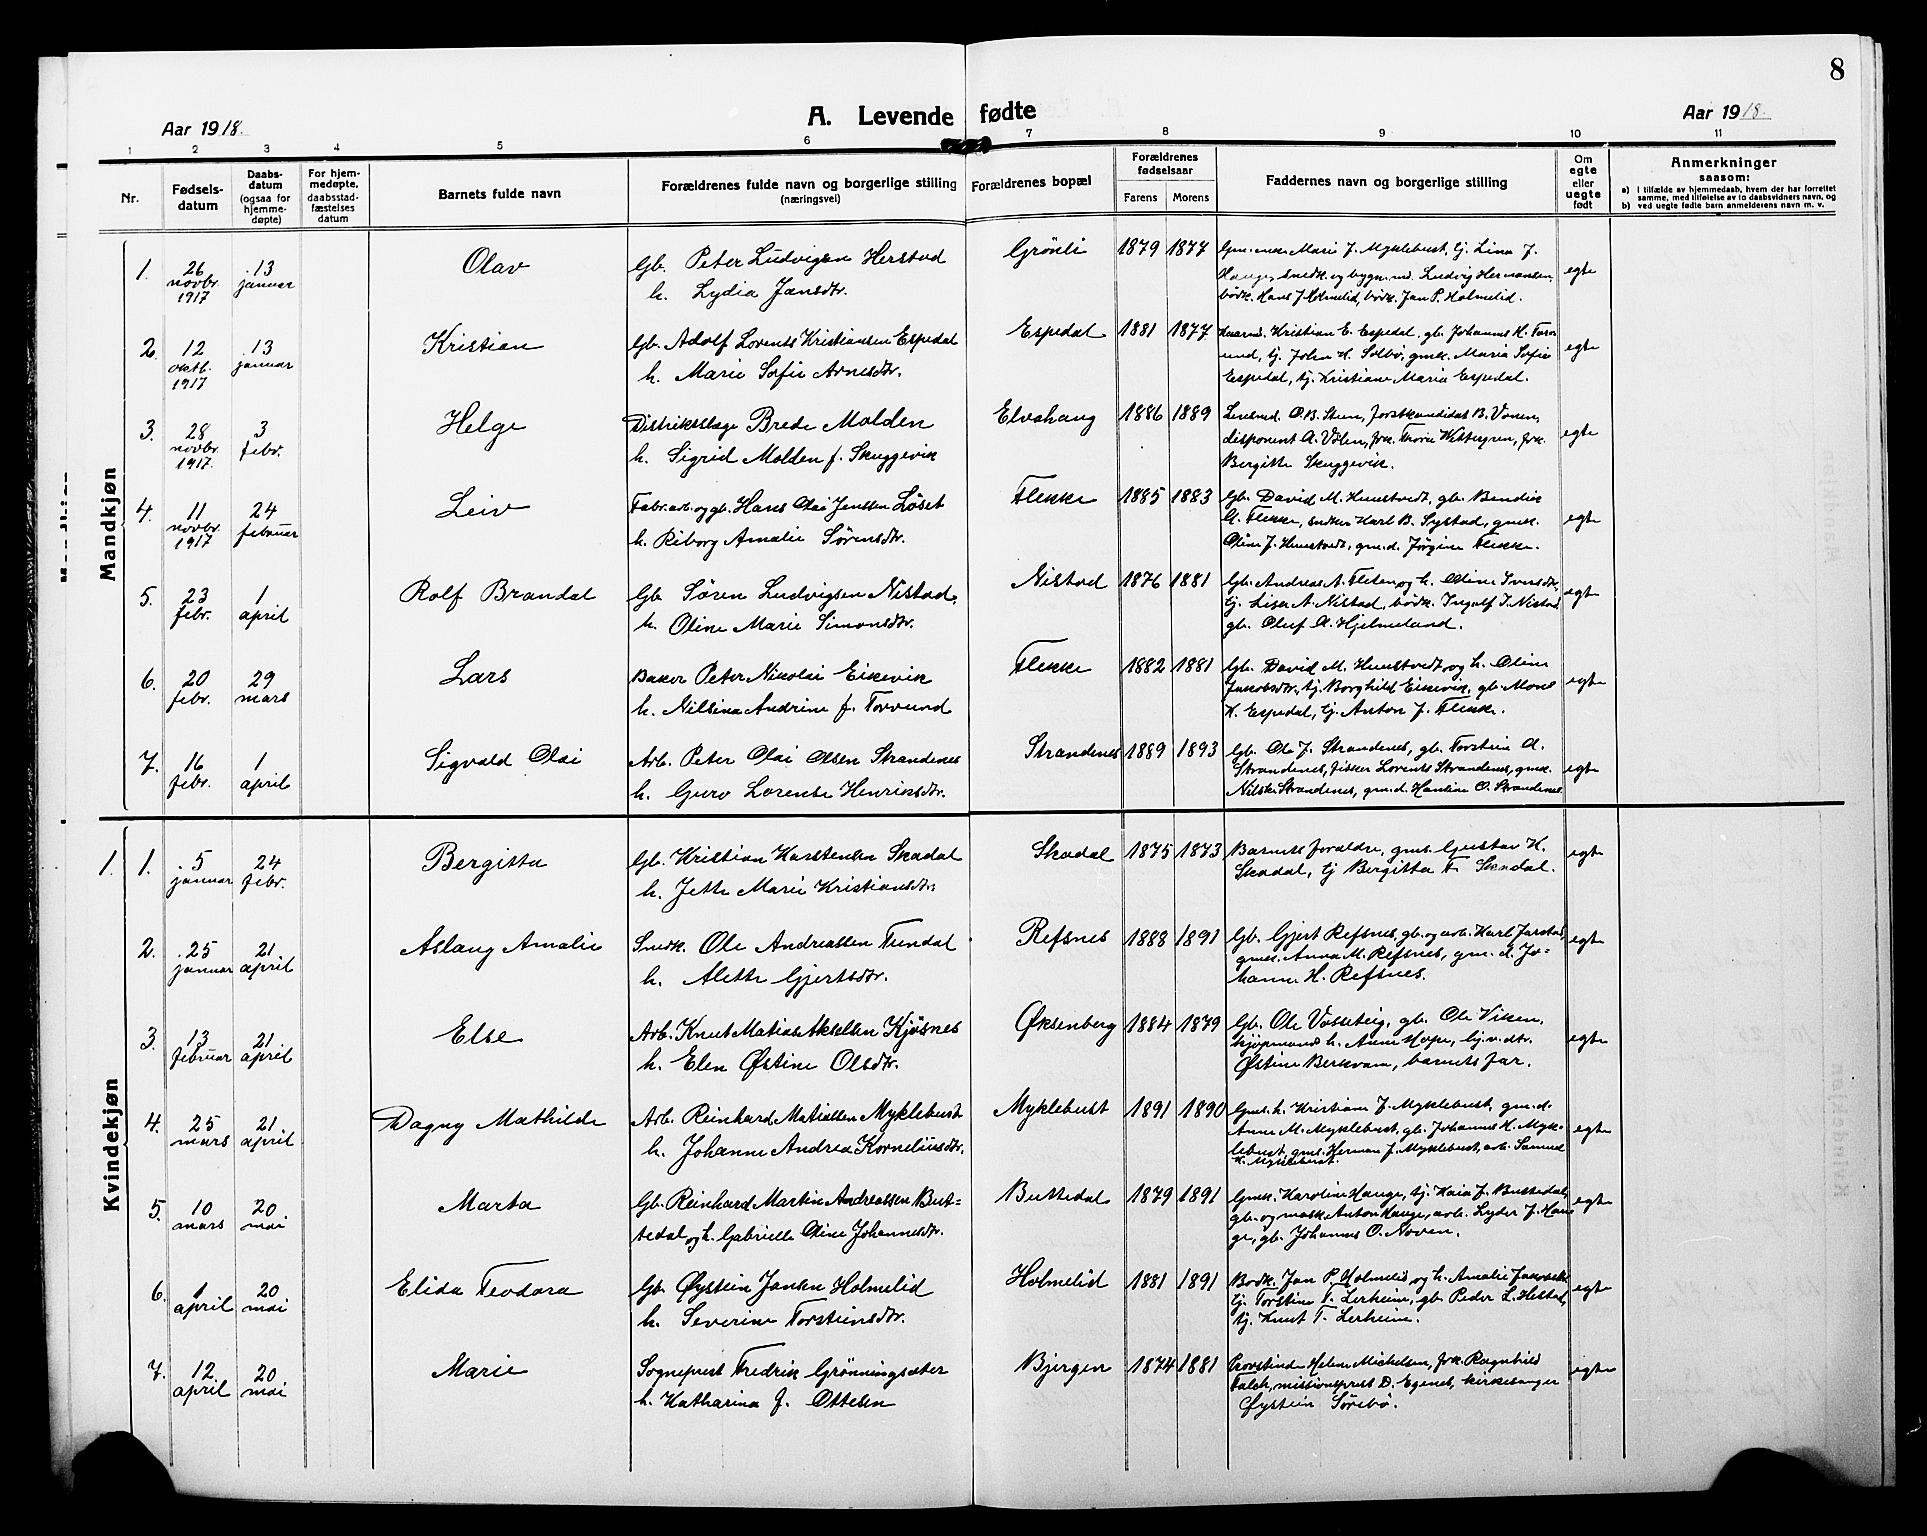 8
A. Levende fødte
Aar 1918.
Aar 1918.
1 2 3 4 5 6 7 8 9 10 11
Nr.
Fødsels-
datum
Daabs-
datum
(ogsaa for
hjemme-
døpte)
For hjem-
medøpte,
daabsstad-
fæstelses
datum
Barnets fulde navn
Forældrenes fulde navn og borgerlige stilling
(næringsvei)
Forældrenes bopæl
Forældrenes
fødselsaar
Farens Morens
Faddernes navn og borgerlige stilling
Om
egte
eller
uegte
født
Anmerkninger
saasom:
a) i tilfælde av hjemmedaab, hvem der har forrettet
samme, med tilføielse av to daabsvidners navn, og
b) ved uegte fødte barn anmelderens navn m. v.
Mandkjøn
1. 26 novbr. 1917 13 januar Olav Gb. Peter Ludvigsen Herstad
h. Lydia Jansdtr.
Grönli 1879 1877 Gm. enk. Marie J. Myklebust, tj. Lina J.
Hauge, snedk. og bygn.md. Ludvig Hermansen,
bødk. Hans J Holmelid, bødk. Jan P. Holmelid.
egte
2. 12 oktb. 1917 13 januar Kristian Gb. Adolf Lorents Kristiansen Espedal
h. Marie Sofie Arnesdtr.
Espedal 1881 1877 Kaarm. Kristian E. Espedal, gb. Johannes H. Tor-
und, tj. Johan H. Solbö, gmk. Maria Sofie
Espedal, tj. Kristiane Maria Espedal.
egte
3. 28 novbr. 1917. 3 febr. Helge Distrikslæge Brede Molden
h. Sigrid Molden f. Skuggevik
Elvahaug 1886 1889 O.B. Steen, forstkandidat B. Vonen,
disponent A. Volen, frk. Thora Wettergren, frk.
Bergitte Skuggevik.
egte
4. 11 novbr. 1917 24 februar Leiv Fabr.arb. og gb. Hans Olai Jenssen Löset
h. Riborg Amalie Sörensdtr.
Flekke 1885 1883 Gb. David M. Hunstvedt, gb. Bendik
A. Flekke, sndker Karl B. Systad, gmk.
Oline J. Hunstvedt, gm.d. Jørgine Flekke.
egte
5. 23 febr. 1 april Rolf Brandal Gb. Sören Ludvigsen Nistad,
h. Oline Marie Simonsdtr.
Nistad 1876 1881 Gb. Andreas A. Fleten og h. Oline Iversdtr,
tj. Lisa A. Nistad, bødk. Ingolf I. Nistad
gb. Oluf A. Hjelmeland.
egte
6. 20 febr. 29 mars Lars Baker Peter Nikolai Eikevik
h. Nilsina Andrine f. Torvund
Flekke 1882 1881 Gb. David M. Hunstvedt og h. Oline
Jakobsdtr, tj. Borghild Eikevik, gb. Mons
K. Espedal, tj. Anton J. Flekke.
egte
7. 16 febr. 1 april Sigvald Olai Arb. Peter Olai Olsen Strandenes
h. Guro Lorense Henriksdtr.
Strandenes 1889 1893 Gb. Ole J. Strandenes, gb. Torstein A.
Strandenes, fisker Lorents Strandenes, gmk.
Strandenes, gm.d. Hansine O. Strandenes
egte
Kvindekjøn
1. 1. 5 januar 24 febr. Bergitta Gb. Kristian Karstensen Skadal
h. Jette Marie Kristiansdtr.
Skadal 1875 1873 Barnets foraldre, gms. Gustav K.
Skadal, tj Bergitta T. Skadal.
egte
2. 25 januar 21 april Aslaug Amalie Snedk. Ole Andreassen Tundal
h. Alette Gjertsdtr.
Refsnes 1888 1891 Gb. Gjert Refsnes, gb. og arb. Karl Jarstad,
gmk. Anna M. Refsnes, gm. d. Jo-
hanne H. Refsnes.
egte
3. 13 februar 21 april Else Arb. Knut Matias Akselsen Kjösnes
h. Elen Østine Olsdtr.
Øksenberg 1884 1879 Gb. Ole Vasseteig, gb. Ole Viken,
kjøpmands h. Anne Hope, tj.v. dtr.
Østine Berkvam, barnets far.
egte
4. 25 mars 21 april Dagny Mathilde Arb. Reinhard Matiassen Myklebust
h. Johanne Andrea Korneliusdtr.
Myklebust 1891 1890 Gms. h. Kristiane J. Myklebust, gm.d.
Anne M. Myklebust, gb. Johannes K. Myk-
lebust, gms. Herman J. Myklebust, arb. Samuel
K. Myklebust.
egte
5. 10 mars 20 mai Marta Gb. Reinhard Martin Andreassen But-
tedal og h. Gabrielle Oline Johannesdtr.
Buttedal 1879 1891 Gmk. Karoline Hauge, tj. Kaia J. Buttedal,
gb. og mask. Anton Hauge, arb. Lyder J. Hau-
ge, gb. Johannes O. Noven.
egte
6. 1 april 20 mai Elida Teodora Gb. Øystein Jansen Holmelid
h. Severine Torsteinsdtr.
Holmelid 1881 1891 Bødk. Jan P. Holmelid og h. Amalie
tj. Torstine T. Lerheim, gb. Peder L. Hestad,
tj. Knut T. Lerheim.
egte
7. 12. april 20 mai Marie Sogneprest Fredrik Grönningsæter
h. Katharina f. Ottesen
Bjergen 1874 1881 Provstinde Helene Michelsen, frk. Ragnhild
Falch, missionsprest D. Egenes, kirkesanger
Øystein Sörebö.
egte